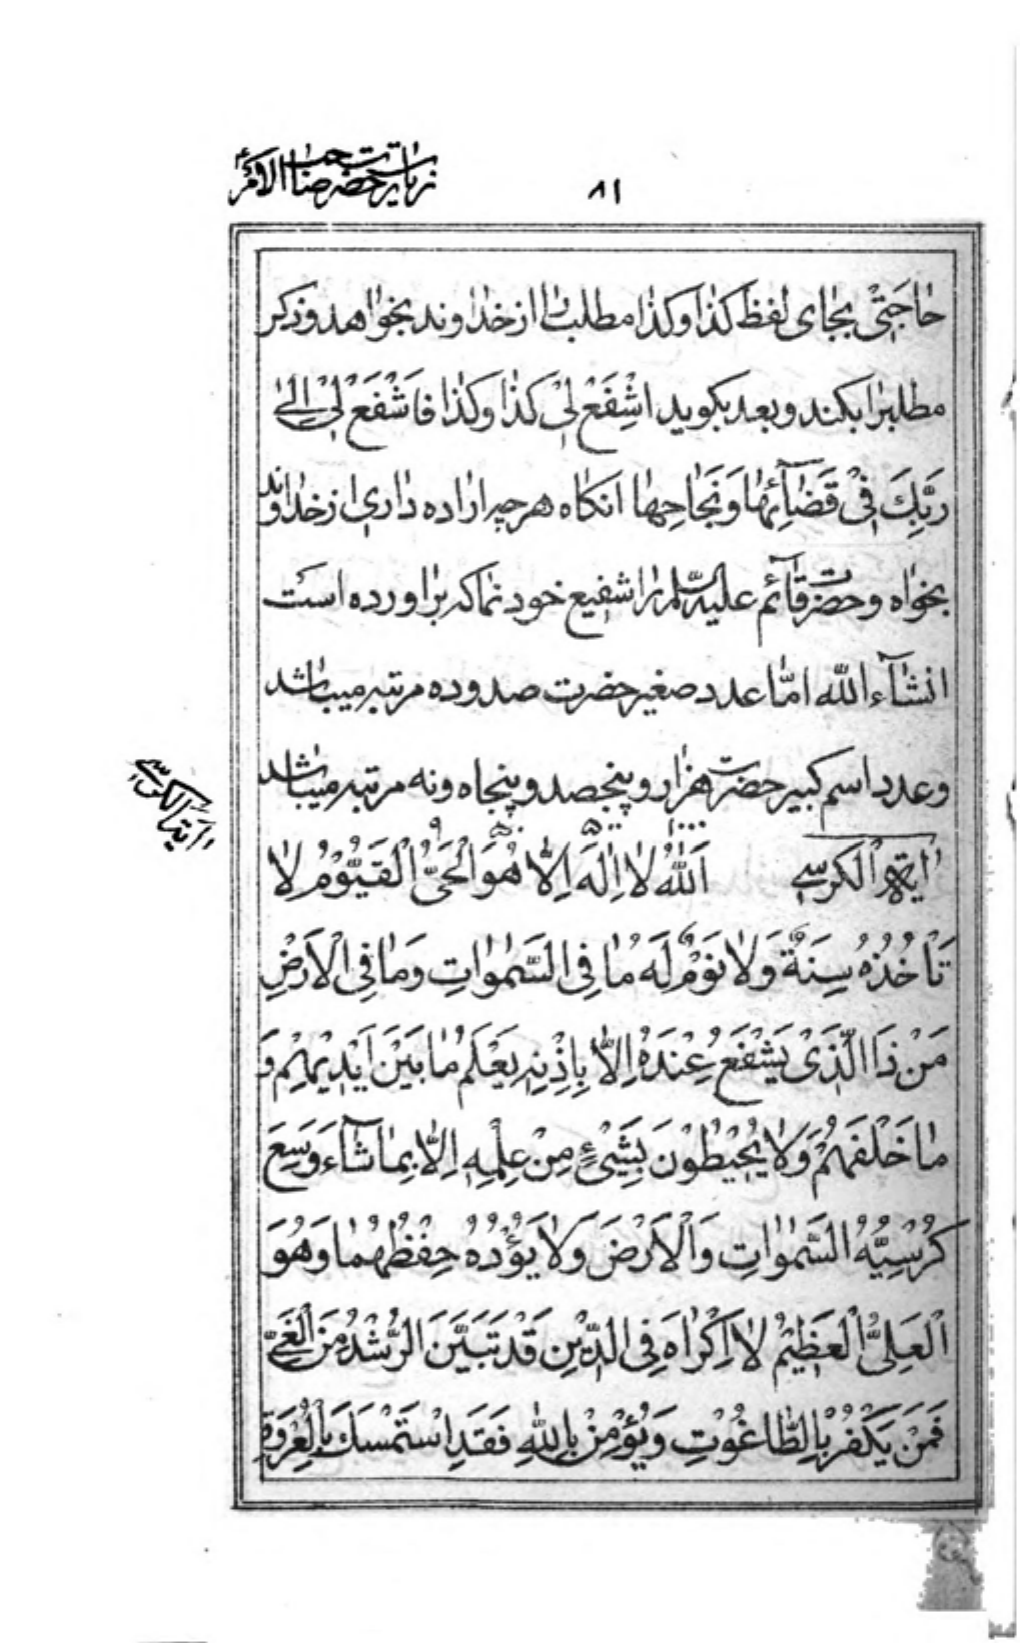 زیارت حضرت صاحب الامر ٨١
حٰاجَتیْ بجٰای لفظ کَذٰا وکَذٰا مطلب را از خداوند بخواهد و ذکر
مطلب را بکند و بعد بکوید اشْفَعْ لیْ کَذٰا وکَذٰا فَاشْفَعْ لیْ اِلیٰ
رَبِّكَ فیْ قَضٰآئِهٰا وَنَجٰاحِهٰا انکاه هرچه اراده داری از خداوند
بخواه و حضرت قآئم علیه السلم را شفیع خود نما که براورده است
انشآء الله امّا عدد صغیر حضرت صد و ده مرتبه میباشد
وعدد اسم کبیر حضرت هزار و پنجصد و پنجاه و نه مرتبه میباشد
ایة الکرسی
ایة الْکرسی اَللّٰهُ لٰا اِلٰهَ اِلّٰا هُوَ الْحَیُّ الْقَیُّوْمُ لٰا
تَأْخُذُهُ سِنَةٌ وَلٰا نَوْمٌ لَهُ مٰا فِی السَّمٰوٰاتِ وَمٰا فِی الْاَرْضِ
مَنْ ذَا الَّذیْ یَشْفَعُ عِنْدَهُ اِلّٰا بِاِذْنِهِ یَعْلَمُ مٰا بَیْنَ اَیْدیْهِمْ وَ
مٰا خَلْفَهُمْ وَلٰا یُحیْطُوْنَ بِشَیْءٍ مِنْ عِلْمِهِ اِلّٰا بِمٰا شٰآءَ وَسِعَ
کُرْسِیُّهُ السَّمٰوٰاتِ وَالْاَرْضَ وَلٰا یَؤُدُهُ حِفْظُهُمٰا وَهُوَ
الْعَلِیُّ الْعَظیْمُ لٰا اِکْرٰاهَ فِی الدّیْنِ قَدْ تَبَیَّنَ الرُّشْدُ مِنَ الْغَیِّ
فَمَنْ یَکْفُرْ بِالطّٰاغُوْتِ وَیُؤْمِنْ بِاللّٰهِ فَقَدِ اسْتَمْسَكَ بِالْعُرْوَةِ